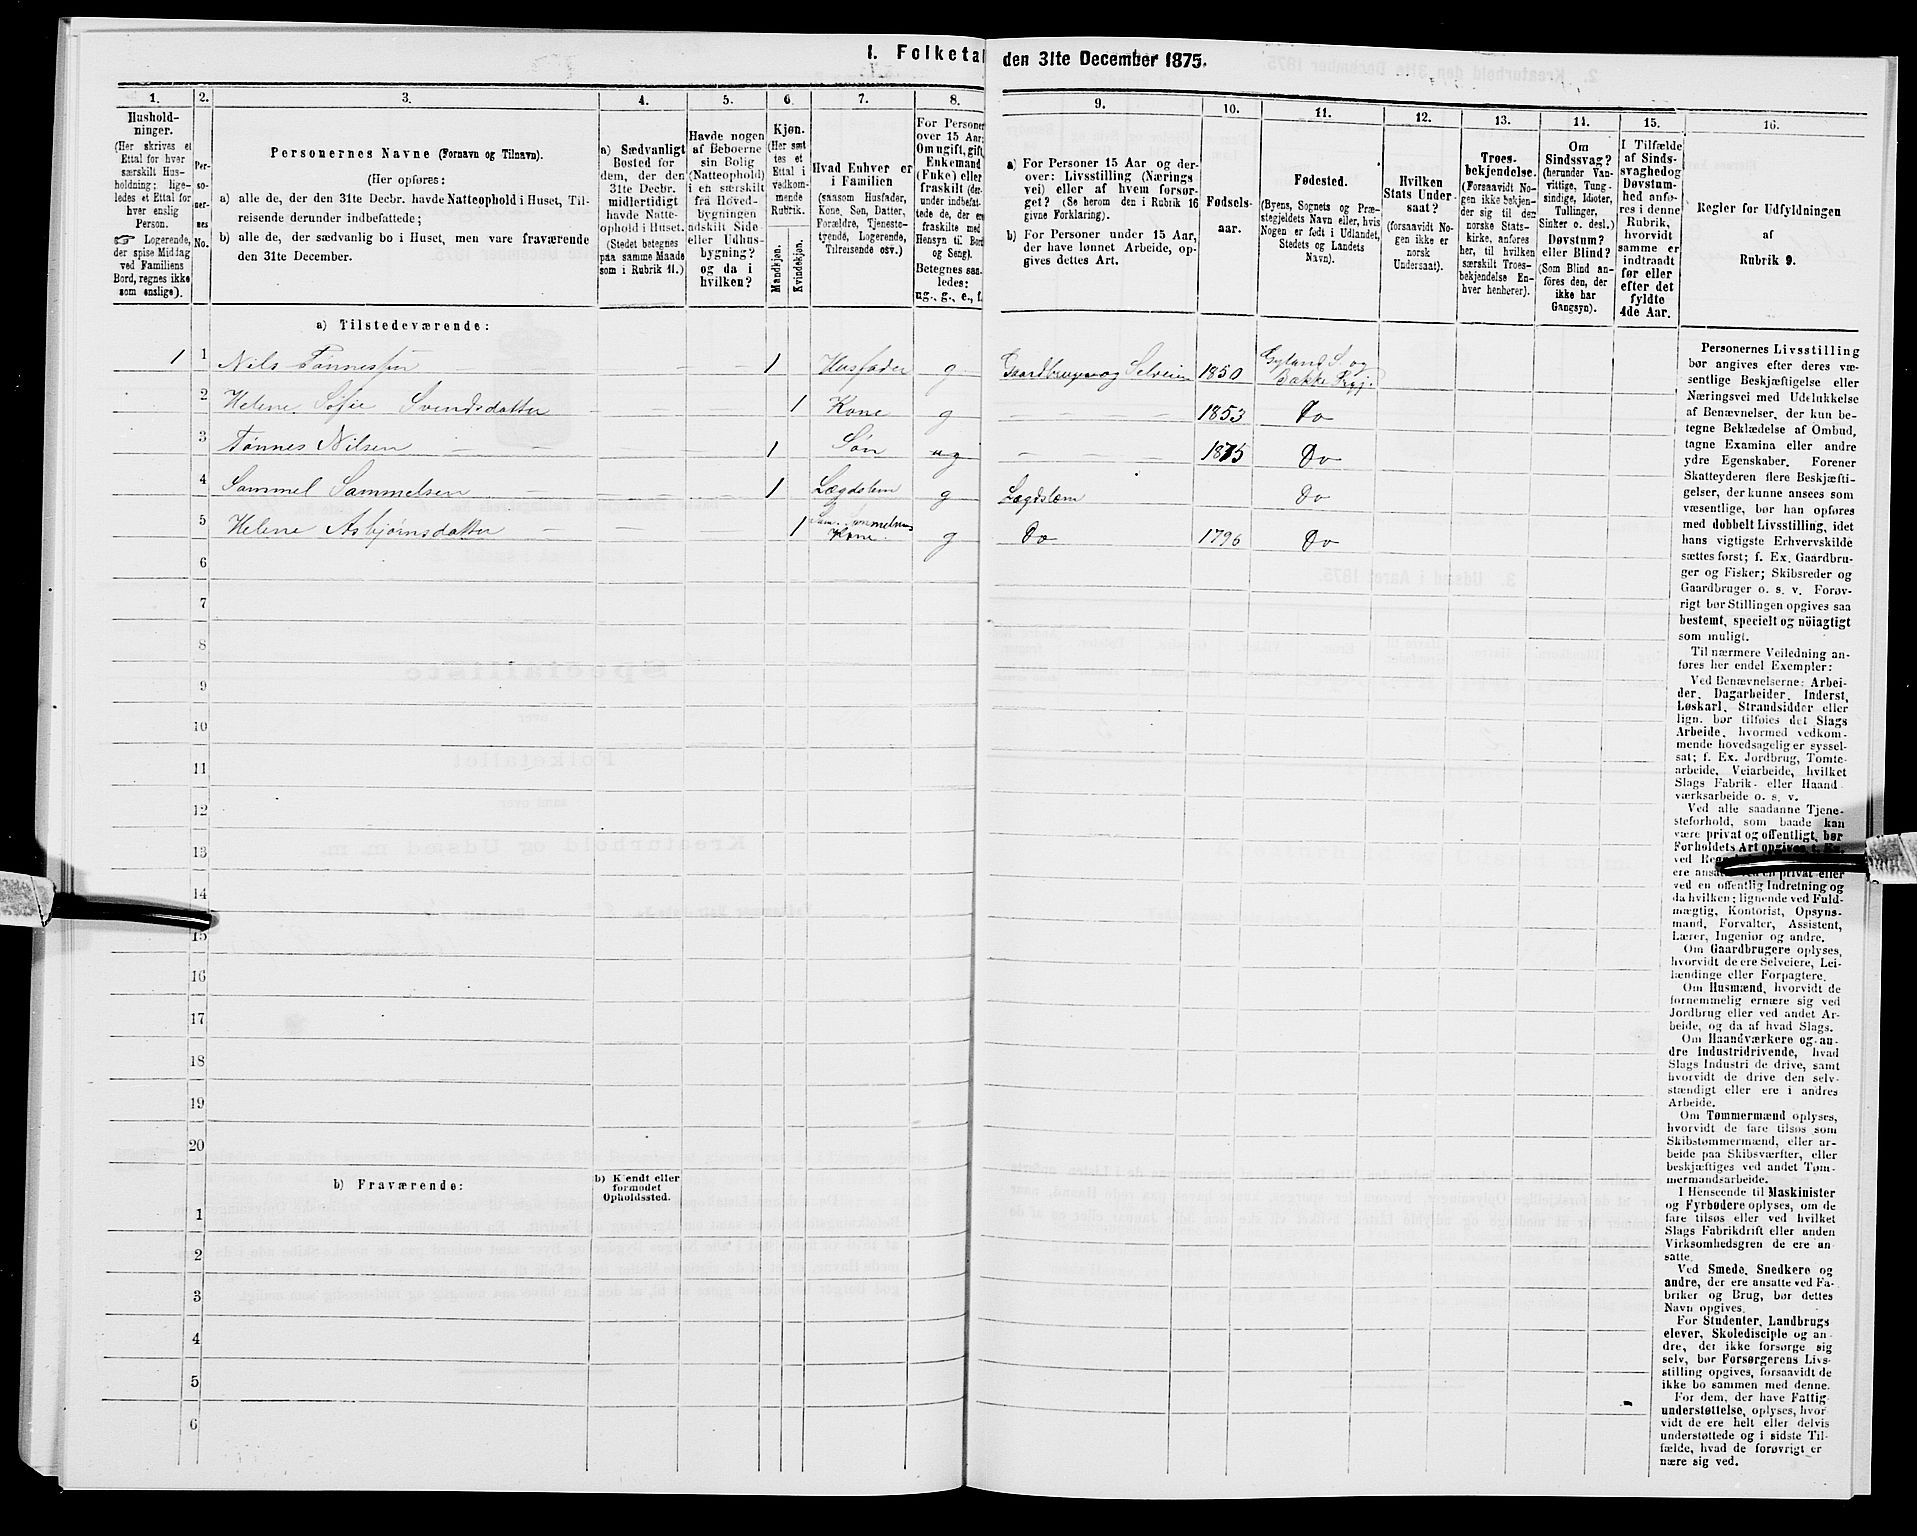 1. Folketal den 31te December 1875.
1.
2.
3.
4.
5.
6.
7.
8.
9.
10.
11.
12.
13.
14.
15.
16.
Hushold-
ninger.
(Her skrives et
Ettal for hver
særskilt Hus-
holdning; lige-
ledes et Ettal for
hver enslig
Person.
☞ Logerende,
der spise Middag
ved Familiens
Bord, regnes ikke
som enslige).
Per-
so-
ner-
nes
No.
Personernes Navne (Fornavn og Tilnavn).
(Her opføres:
a) alle de, der den 31te Decbr. havde Natteophold i Huset, Til-
reisende derunder indbefattede;
b) alle de, der sædvanlig bo i Huset, men vare fraværende
den 31te December.
a) Sædvanligt
Bosted for
dem, der den
31te Decbr.
midlertidigt
havde Natte-
ophold i Huset.
(Stedet betegnes
paa samme Maade
som i Rubrik 11.)
Havde nogen
af Beboerne
sin Bolig
(Natteophold)
i en særskilt
fra Hoved-
bygningen
adskilt Side-
eller Udhus-
bygning?
og da i
hvilken?
Kjøn.
(Her sæt-
tes et
Ettal i
vedkom-
mende
Rubrik.
Mandkjøn.
Kvindekjøn.
Hvad Enhver er
i Familien
(saasom Husfader,
Kone, Søn, Datter,
Forældre, Tjeneste-
tyende, Logerende,
Tilreisende osv.)
For Personer
over 15 Aar:
Om ugift, gift,
Enkemand
(Enke) eller
fraskilt (der-
under indbefat-
tede de, der ere
fraskilte med
Hensyn til Bord
og Seng).
Betegnes saa-
ledes:
ug., g., e., f.
a) For Personer 15 Aar og der-
over: Livsstilling (Nærings-
vei) eller af hvem forsør-
get? (Se herom den i Rubrik 16
givne Forklaring).
b) For Personer under 15 Aar,
der have lønnet Arbeide, op-
gives dettes Art.
Fødsels-
aar.
Fødested.
(Byens, Sognets og Præ-
stegjeldets Navn eller, hvis
Nogen er født i Udlandet,
Stedets og Landets
Navn).
Hvilken
Stats Under-
saat?
(forsaavidt No-
gen ikke er
norsk
Undersaat).
Troes-
bekjendelse.
(Forsaavidt No-
gen ikke bekjen-
der sig til den
norske Stats-
kirke, anføres
her, til hvilken
særskilt Troes-
bekjendelse En-
hver henhører).
Om
Sindssvag?
(herunder Van-
vittige, Tung-
sindige, Idioter,
Tullinger,
Sinker o. desl.)
Døvstum?
eller Blind?
(Som Blind an-
føres den, der
ikke har
Gangsyn).
I Tilfælde
af Sinds-
svaghed og
Døvstum-
hed anfø-
res i denne
Rubrik,
hvorvidt
samme er
indtraadt
før eller
efter det
fyldte
4de Aar.
Regler for Udfyldningen
af
Rubrik 9.
a) Tilstedeværende:
1 1 Nils Tønnessen — — 1 Husfader g Gaardbruger og Selveier 1850 Gyland S. og
Bakke Prgj.
2 Helene Sofie Svendsdatter — — 1 Kone g — — 1853 Do
3 Tønnes Nilsen — — 1 Søn ug — — 1875 Do
4 Sammel Sammelsen — — 1 Lægdslem g Lægdslem Do
5 Helene Asbjørnsdatter — — 1 Sam. Sammelsens
Kone. g Do 1796 Do
6
7
8
9
10
11
12
13
14
15
16
17
18
19
20
b) Fraværende:
b) Kjendt eller
formodet
Opholdssted.
1
2
3
4
5
6
Personernes Livsstilling
bør angives efter deres væ-
sentlige Beskjæftigelse eller
Næringsvei med Udelukkelse
af Benævnelser, der kun be-
tegne Beklædelse af Ombud,
tagne Examina eller andre
ydre Egenskaber. Forener
Skatteyderen flere Beskjæfti-
gelser, der kunne ansees som
væsentlige, bør han opføres
med dobbelt Livsstilling, idet
hans vigtigste Erhvervskilde
sættes først; f. Ex. Gaardbru-
ger og Fisker; Skibsreder og
Gaardbruger o. s. v. Forøv-
rigt bør Stillingen opgives saa
bestemt, specielt og nöiagtigt
som muligt.
Til nærmere Veiledning an-
føres her endel Exempler:
Ved Benævnelserne: Arbei-
der, Dagarbeider, Inderst,
Løskarl, Strandsidder eller
lign. bør tilføies det Slags
Arbeide, hvormed vedkom-
mende hovedsagelig er syssel-
sat; f. Ex. Jordbrug, Tomte-
arbeide, Veiarbeide, hvilket
Slags Fabrik- eller Haand
værksarbeide o. s. v.
Ved alle saadanne Tjene-
steforhold, som baade kan
være privat og offentligt, bør
Forholdets Art opgives, f. Ex.
ere ansatte ved en privat eller
ved en offentlig Indretning og
da hvilken; lignende ved Fuld-
mægtig, Kontorist, Opsyns-
mand, Forvalter, Assistent,
Lærer, Ingeniør og andre.
Om Gaardbrugere oplyses,
hvorvidt de ere Selveiere, Lei-
lændinge eller Forpagtere.
Om Husmænd, hvorvidt de
fornemmelig ernære sig ved
Jordbrug eller ved andet Ar-
beide, og da af hvad Slags.
Om Haandværkere og an-
dre Industridrivende, hvad
Slags Industri de drive, samt
hvorvidt de drive den selv-
stændigt eller ere i andres
Arbeide.
Om Tømmermænd oplyses,
hvorvidt de fare tilsøs som
Skibstømmermænd, eller ar-
beide paa Skibsværfter, eller
beskjæftiges ved andet Tøm-
mermandsarbeide.
I Henseende til Maskinister
og Fyrbødere oplyses, om de
fare tilsøs eller ved hvilket
Slags Fabrikdrift eller anden
Virksomhedsgren de ere an
satte.
Ved Smede, Snedkere og
andre, der ere ansatte ved Fa-
briker og Brug, bør dettes
Navn opgives.
For Studenter, Landbrugs
elever, Skoledisciple og an-
dre, der ikke forsørge sig
selv, bør Forsørgerens Livs-
stilling opgives, forsaavidt de
ikke bo sammen med denne.
For dem, der have Fattig-
understøttelse, oplyses, hvor
vidt de ere helt eller delvis
understøttede og i sidste Til-
fælde, hvad de forøvrigt er
nære sig ved.